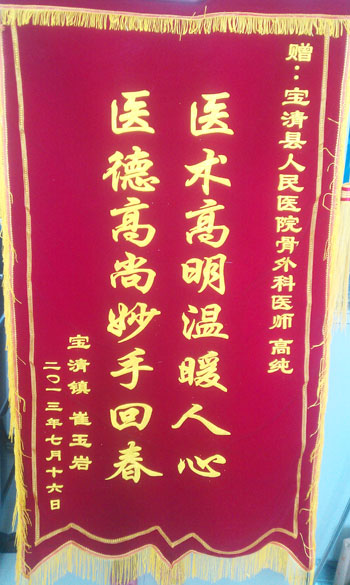 赠：宝清县人民医院骨外科医师 高纯
医术高明温暖人心
医德高尚妙手回春
宝清镇 崔玉岩
二〇一三年七月十六日